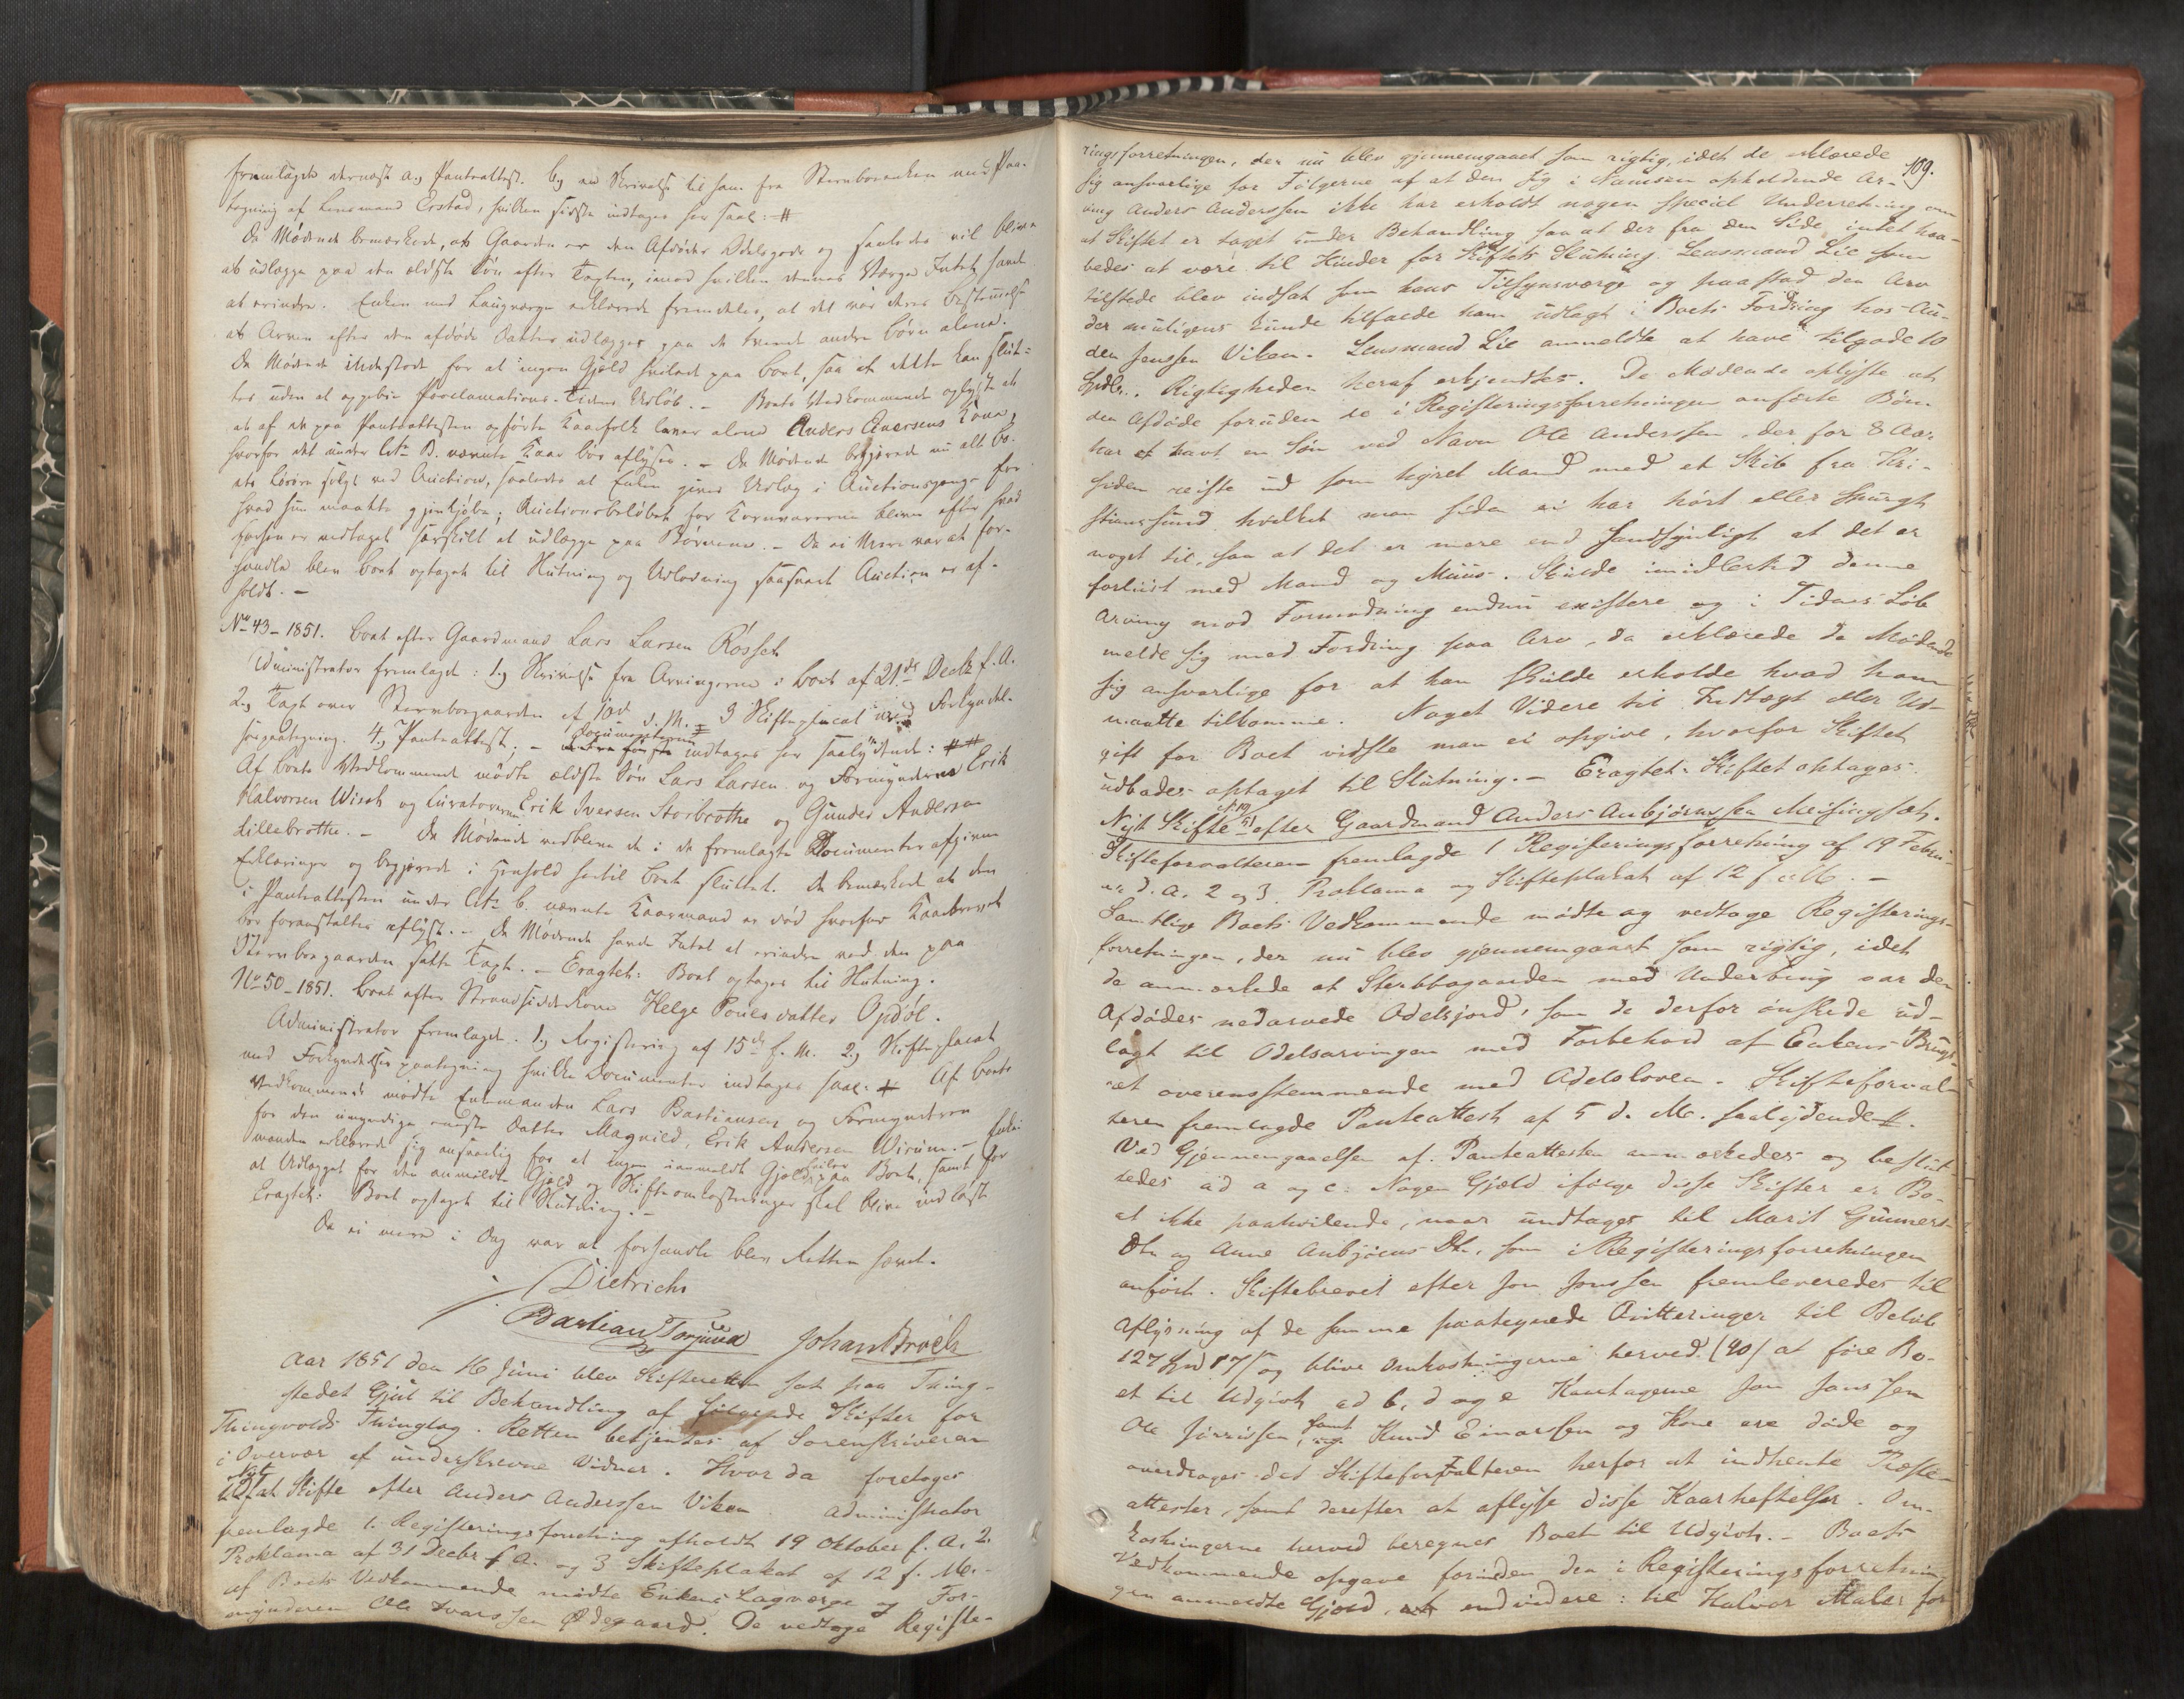 fremlagde dernæst a, Panteattest. b, en Skrivelse til ham fra Sterboenken med Paa-
tegning af Lensmand Erstad, hvilken sidste indtages her saal: #
De Mødende bemærkede, at Gaarden er den Afdødes Odelsgods og saaledes vil blive
at udlægge paa den ældste Søn efter Taxten, imod hvilken dennes Værge Intet havde
at erindre. Enken med Laugværge erklærede fremdeles, at det var deres Bestemmelse
at Arven efter den afdøde Datter udlægges paa de tvende andre Børn alene.
De Mødende indestode for at ingen Gjæld hviled paa Boet, saa at dette kan slut-
tes uden at oppebie Proclamations-Tidens Udløb. - Boets Vedkommende oplyste at
at af de paa Pantattesten opførte Kaarfolk lever alene Anders Iversens Kone,
hvorfor det under Litr B. nævnte Kaar bør aflyses. - De Mødende begjærede nu alt Bo-
ets Løsøre solgt ved Auction, saaledes at Enken gives Udlæg i Auctionspenge for
hvad hun maatte gjenkjøbe; Auctionsbeløbet for Kornvarerne bliver efter hvad
forhen er vedtaget særskilt at udlægge paa Børnene. - Da ei Mere var at for-
handle blev Boet optaget til Slutning og Udlodning saasnart Auction er af-
holdt. -
No 43 - 1851. Boet efter Gaardmand Lars Larsen Røsseh
Administrator fremlagde: 1, Skrivelse fra Arvingerne i Boet af 21de Decbr f. A.
2, Taxt over Sterboegaarden af 10de d. M. 3 Skifteplacat med Forkyndel-
sespaategning. 4, Pantattest; - Documenterne indtages her saalydende: ##
Af Boets Vedkommende mødte ældste Søn Lars Larsen og Formynderne Erik
Halvorsen Wisch og Curatoren Erik Iversen Storbrøthe og Gunder Andersen
Lillebrøthe. - De Mødende vedbleve de i de fremlagte Documenter afgivne
Erklæringer og begjærede i Henhold hertil Boet sluttet. De bemærkede at den
i Pantattesten under Litr b. nævnte Kaarmand er død hvorfor Kaarbrevet
bør foranstaltes aflyst. - De Mødende havde Intet at erindre ved den paa
Sterboegaarden satte Taxt. - Eragtet: Boet optages til Slutning.
No 50 - 1851. Boet efter Strandsidderkone Helge Poulsdatter Opdøl.
Administrator fremlagde. 1, Registrering af 15de f. M. 2, Skifteplacat
med Forkyndelsespaategning hvilke Documenter indtages saal: # Af Boets
Vedkommende mødte Enkemanden Lars Bastiansen og Formynderen
for den umyndige eneste Datter Magnild, Erik Andersen Wirum. - Enke-
manden erklærede sig ansvarlig for at Ingen uanmeldt Gjæld hviler paa Boet, samt for
at Udlægget for den anmeldte Gjæld og Skifteomkostninger skal blive indløst
Eragtet: Boet optaget til Slutning. -
Da ei mere i Dag var at forhandle blev Retten hævet.
Dietrichs
Bastian Torjuul Johan Broch
Aar 1851 den 16 Juni blev Skifteretten sat paa Thing-
stedet Gjøl til Behandling af følgende Skifter for
Thingvolds Thinglag. Retten betjentes af Sorenskriveren
i Overvær af underskrevne Vidner. Hvor da foretoges
Nyt Skifte efter Anders Anderssen Viken Administrator
fremlagde 1. Registeringsforretning afholdt 19 Oktober f. A. 2.
Proklama af 31 Decbr f A. og 3 Skifteplakat af 12 f. M. -
af Boets Vedkommende mødte Enkens Lagværge og For-
mynderen Ole Ivarssen Ødegaard. De vedtoge Registe-
109.
ringsforretningen, der nu blev gjennemgaaet som rigtig, idet de erklærede
sig ansvarlige for Følgerne af at den sig i Namsen opholdende Ar-
ving Anders Anderssen ikke har erholdt nogen special Underretning om
at Skiftet er taget under Behandling saa at der fra den Side intet haa-
bedes at være til Hinder for Skiftets Slutning. Lensmand Lie som
tilstede blev indsat som hans Tilsynsværge og paastod den Arv
der muligens kunde tilfalde ham udlagt i Boets Fordring hos Au-
den Jenssen Viken. Lensmand Lie anmeldte at have tilgode 10
Spdlr. Rigtigheden heraf erkjendtes. De Mødende oplyste at
den Afdøde foruden de i Registeringsforretningen anførte Børn
har havt en Søn ved Navn Ole Anderssen, der for 8 Aar
siden reiste ud som hyret Mand med et Skib fra Kri-
stianssund hvilket man siden ei har hørt eller spurgt
noget til, saa at det er mere end sandsynligt at det er
forliist med Mand og Muus. Skulde imidlertid denne
Arving mod Formodning endnu existere og i Tidens Løb
melde sig med Fordring paa Arv, da erklærede de Mødende
sig ansvarlige for at han skulde erholde hvad ham
maatte tilkomme. Noget Videre til Indtægt eller Ud-
gift for Boet vidste man ei opgive, hvorfor Skiftet
udbades optaget til Slutning. - Eragtet: Skiftet optages.
Nyt Skifte efter Gaardmand Anders Anbjørnssen Meisingset.
Skifteforvalteren fremlagde 1 Registeringsforretning af 19 Febru-
ar d. A. 2 og 3. Proklama og Skifteplakat af 12 f M. -
Samtlige Boets Vedkommende mødte og vedtoge Registerings-
forretningen, der nu blev gjennemgaaet som rigtig, idet
de anmærkede at Sterbbogaarden med Underbrug var den
Afdødes nedarvede Odelsjord, som de derfor ønskede ud-
lagt til Odelsarvingen med Forbehold af Enkens Brugs-
ret overensstemmende med Odelsloven. Skifteforval-
teren fremlagde Panteattest af 5 d. M. saalydende #.
Ved Gjennemgaaelsen af Panteattesten anmærkedes og beslut-
tedes ad a og c: Nogen Gjæld ifølge disse Skifter er Bo-
et ikke paahvilende, naar undtages til Marit Gunners
Dtr og Anne Anbjørns Dtr, som i Registeringsforretningen
anført. Skiftebrevet efter Jon Jonssen fremleveredes til
Aflysning af de samme paategnede Qvitteringer til Beløb
127 Spd 87 s og blive Omkostningerne herved (90) at føre Bo-
et til Udgivt ad b, d og e Kaartagerne Jon Jonssen
Ole Jørrissen, samt Knud Einarssen og Kone ere døde og
overdroges det Skifteforvalteren herfor at indhente Præste-
attester, samt derefter at aflyse disse Kaarheftelser. Om-
kostningerne herved beregnes Boet til Udgivt. - Boets
Vedkommende opgave foruden den i Registeringsforretnin-
gen anmeldte Gjæld, endvidere: til Halvor Maler for